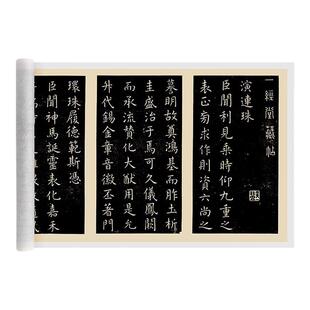 一經堂藏帖
演連珠
臣聞利見乘時仰九重之
表正旁求作則資六尚之
墓明故真鴻基而胙土析
圭盛治于焉可久儀鳳闕
而承流贊化大猷用是允
升代錫金華音徽丕著門
環珠履德範斯憑
臣聞神馬誕靈表化嘉禾